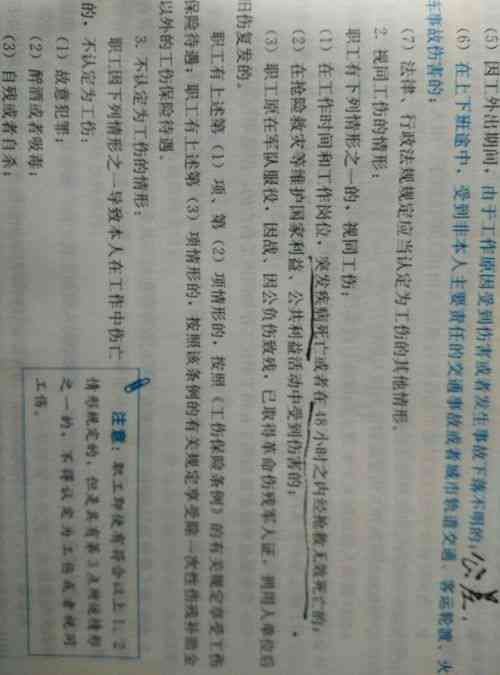 (5) 因工外出期间，由于工作原因受到伤害或者发生事故下落不明的；公差.
(6) 在上下班途中，受到非本人主要责任的交通事故或者城市轨道交通、客运轮渡、火
车事故伤害的；
(7) 法律、行政法规规定应当认定为工伤的其他情形。
2. 视同工伤的情形：
职工有下列情形之一的，视同工伤：
(1) 在工作时间和工作岗位，突发疾病死亡或者在48小时之内经抢救无效死亡的；
(2) 在抢险救灾等维护国家利益、公共利益活动中受到伤害的；
(3) 职工原在军队服役，因战、因公负伤致残，已取得革命伤残军人证，到用人单位后
旧伤复发的。
职工有上述第（1）项、第（2）项情形的，按照《工伤保险条例》的有关规定享受工伤
保险待遇；职工有上述第（3）项情形的，按照该条例的有关规定享受除一次性伤残补助金
以外的工伤保险待遇。
3. 不认定为工伤的情形：
职工因下列情形之一导致本人在工作中伤亡
的，不认定为工伤：
(1) 故意犯罪；
(2) 醉酒或者吸毒；
(3) 自残或者自杀；
注意：职工即使有符合以上1、2
情形规定的，但是具有第3点所述情形
之一的，不得认定为工伤或者视同
工伤。